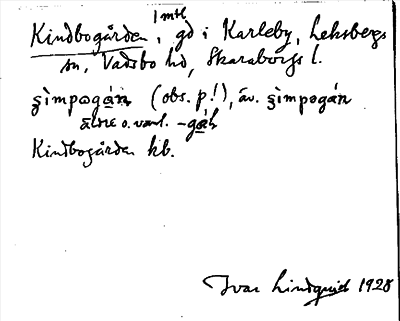 Kindbogården, 1 mtl, gd i Karleby, Leksbergs
sn, Vadsbo hd, Skaraborgs l.
ʂìmpogán (obs. p!), äv. ʂìmpəgán
äldre o. vanl. -gáɳ
Kindbogården kb.
Ivar Lindquist 1928